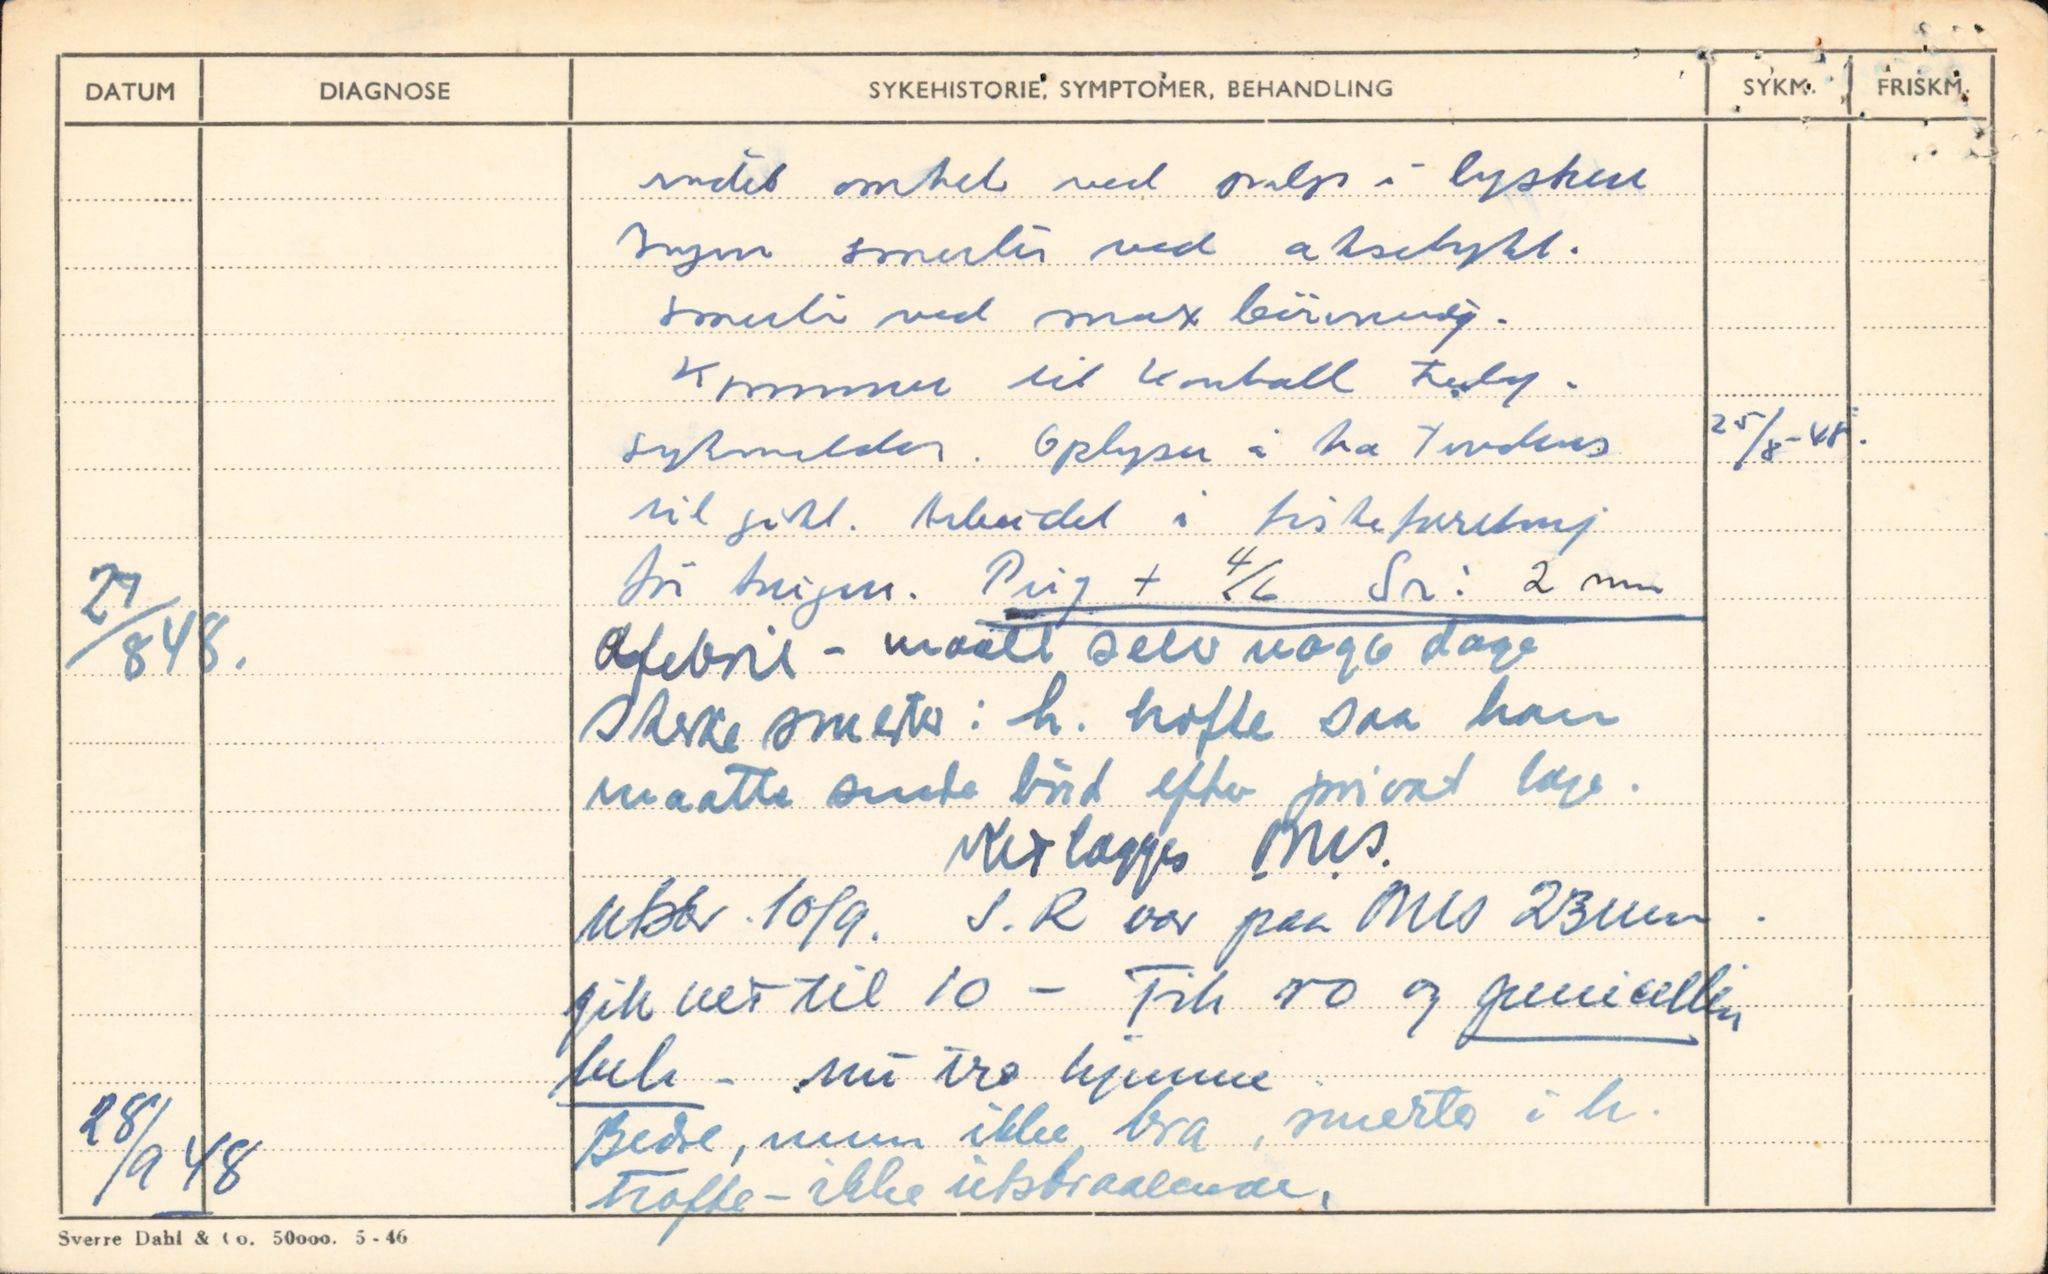 DATUM DIAGNOSE SYKEHISTORIE, SYMPTOMER, BEHANDLING SYKM. FRISKM.
ved i lysken
Ingen smerter ved aksetrykk.
smerter ved max bøining.
Kommer til kontroll
sykmeldes. Oplyser å ha Tendens 25/8-48.
til gikt. Arbeidet i
før krigen. Pirq + 4/6 Sr: 2 mm
27/8 48. Afebril - maalt selv noge dage
Sterke smerter i h. hofte saa han
maatte sende bud efter privat læge.
Nedlægges
10/9. S.R var paa 23 mm
gik ned til 10 - Fik ro og penicellin
beh - nu fra hjemme
28/9 48 Bedre, men ikke bra, smerter i h.
hofte - ikke utstraalende.
Sverre Dahl & Co. 50000. 5-46